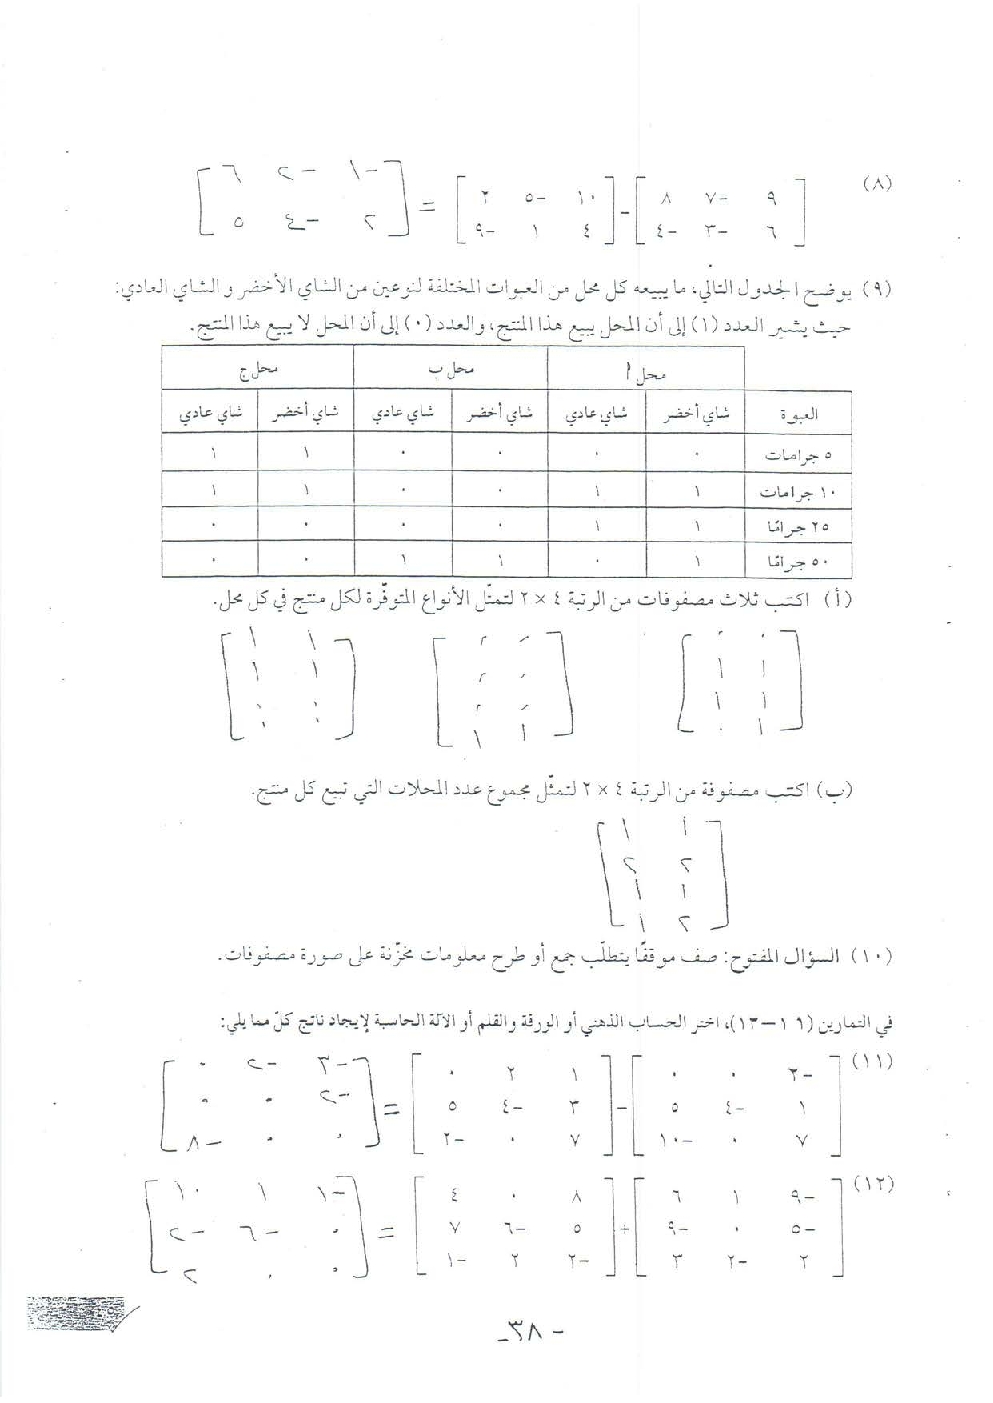 (٨) [٩ -٧ ٨ / ٦ -٣ -٤] - [١٠ -٥ ٢ / ٤ ١ -٩] = [-١ -٢ ٦ / ٢ -٤ ٥]
(٩) يوضح الجدول التالي، ما يبيعه كل محل من العبوات المختلفة لنوعين من الشاي الأخضر والشاي العادي:
حيث يشير العدد (١) إلى أن المحل يبيع هذا المنتج، والعدد (٠) إلى أن المحل لا يبيع هذا المنتج.
محل أ محل ب محل ج
العبوة شاي أخضر شاي عادي شاي أخضر شاي عادي شاي أخضر شاي عادي
٥ جرامات ٠ ٠ ٠ ٠ ١ ١
١٠ جرامات ١ ١ ٠ ٠ ١ ١
٢٥ جرامًا ١ ١ ٠ ٠ ٠ ٠
٥٠ جرامًا ١ ٠ ١ ١ ٠ ٠
(أ) اكتب ثلاث مصفوفات من الرتبة ٤ × ٢ لتمثّل الأنواع المتوفّرة لكل منتج في كل محل.
[٠ ٠ / ١ ١ / ١ ١ / ١ ٠] [٠ ٠ / ٠ ٠ / ٠ ٠ / ١ ١] [١ ١ / ١ ١ / ٠ ٠ / ٠ ٠]
(ب) اكتب مصفوفة من الرتبة ٤ × ٢ لتمثّل مجموع عدد المحلات التي تبيع كل منتج.
[١ ١ / ٢ ٢ / ١ ١ / ٢ ١]
(١٠) السؤال المفتوح: صف موقفًا يتطلّب جمع أو طرح معلومات مخزّنة على صورة مصفوفات.
في التمارين (١١-١٣)، اختر الحساب الذهني أو الورقة والقلم أو الآلة الحاسبة لإيجاد ناتج كلّ مما يلي:
(١١) [-٢ ٠ ٠ / ١ -٤ ٥ / ٧ ٠ -١٠] - [١ ٢ ٠ / ٣ -٤ ٥ / ٧ ٠ -٢] = [-٣ -٢ ٠ / -٢ ٠ ٠ / ٠ ٠ -٨]
(١٢) [-٩ ١ ٦ / -٥ ٠ -٩ / ٢ -٢ ٣] + [٨ ٠ ٤ / ٥ -٦ ٧ / -٢ ٢ -١] = [-١ ١ ١٠ / ٠ -٦ -٢ / ٠ ٠ ٢]
-٣٨-